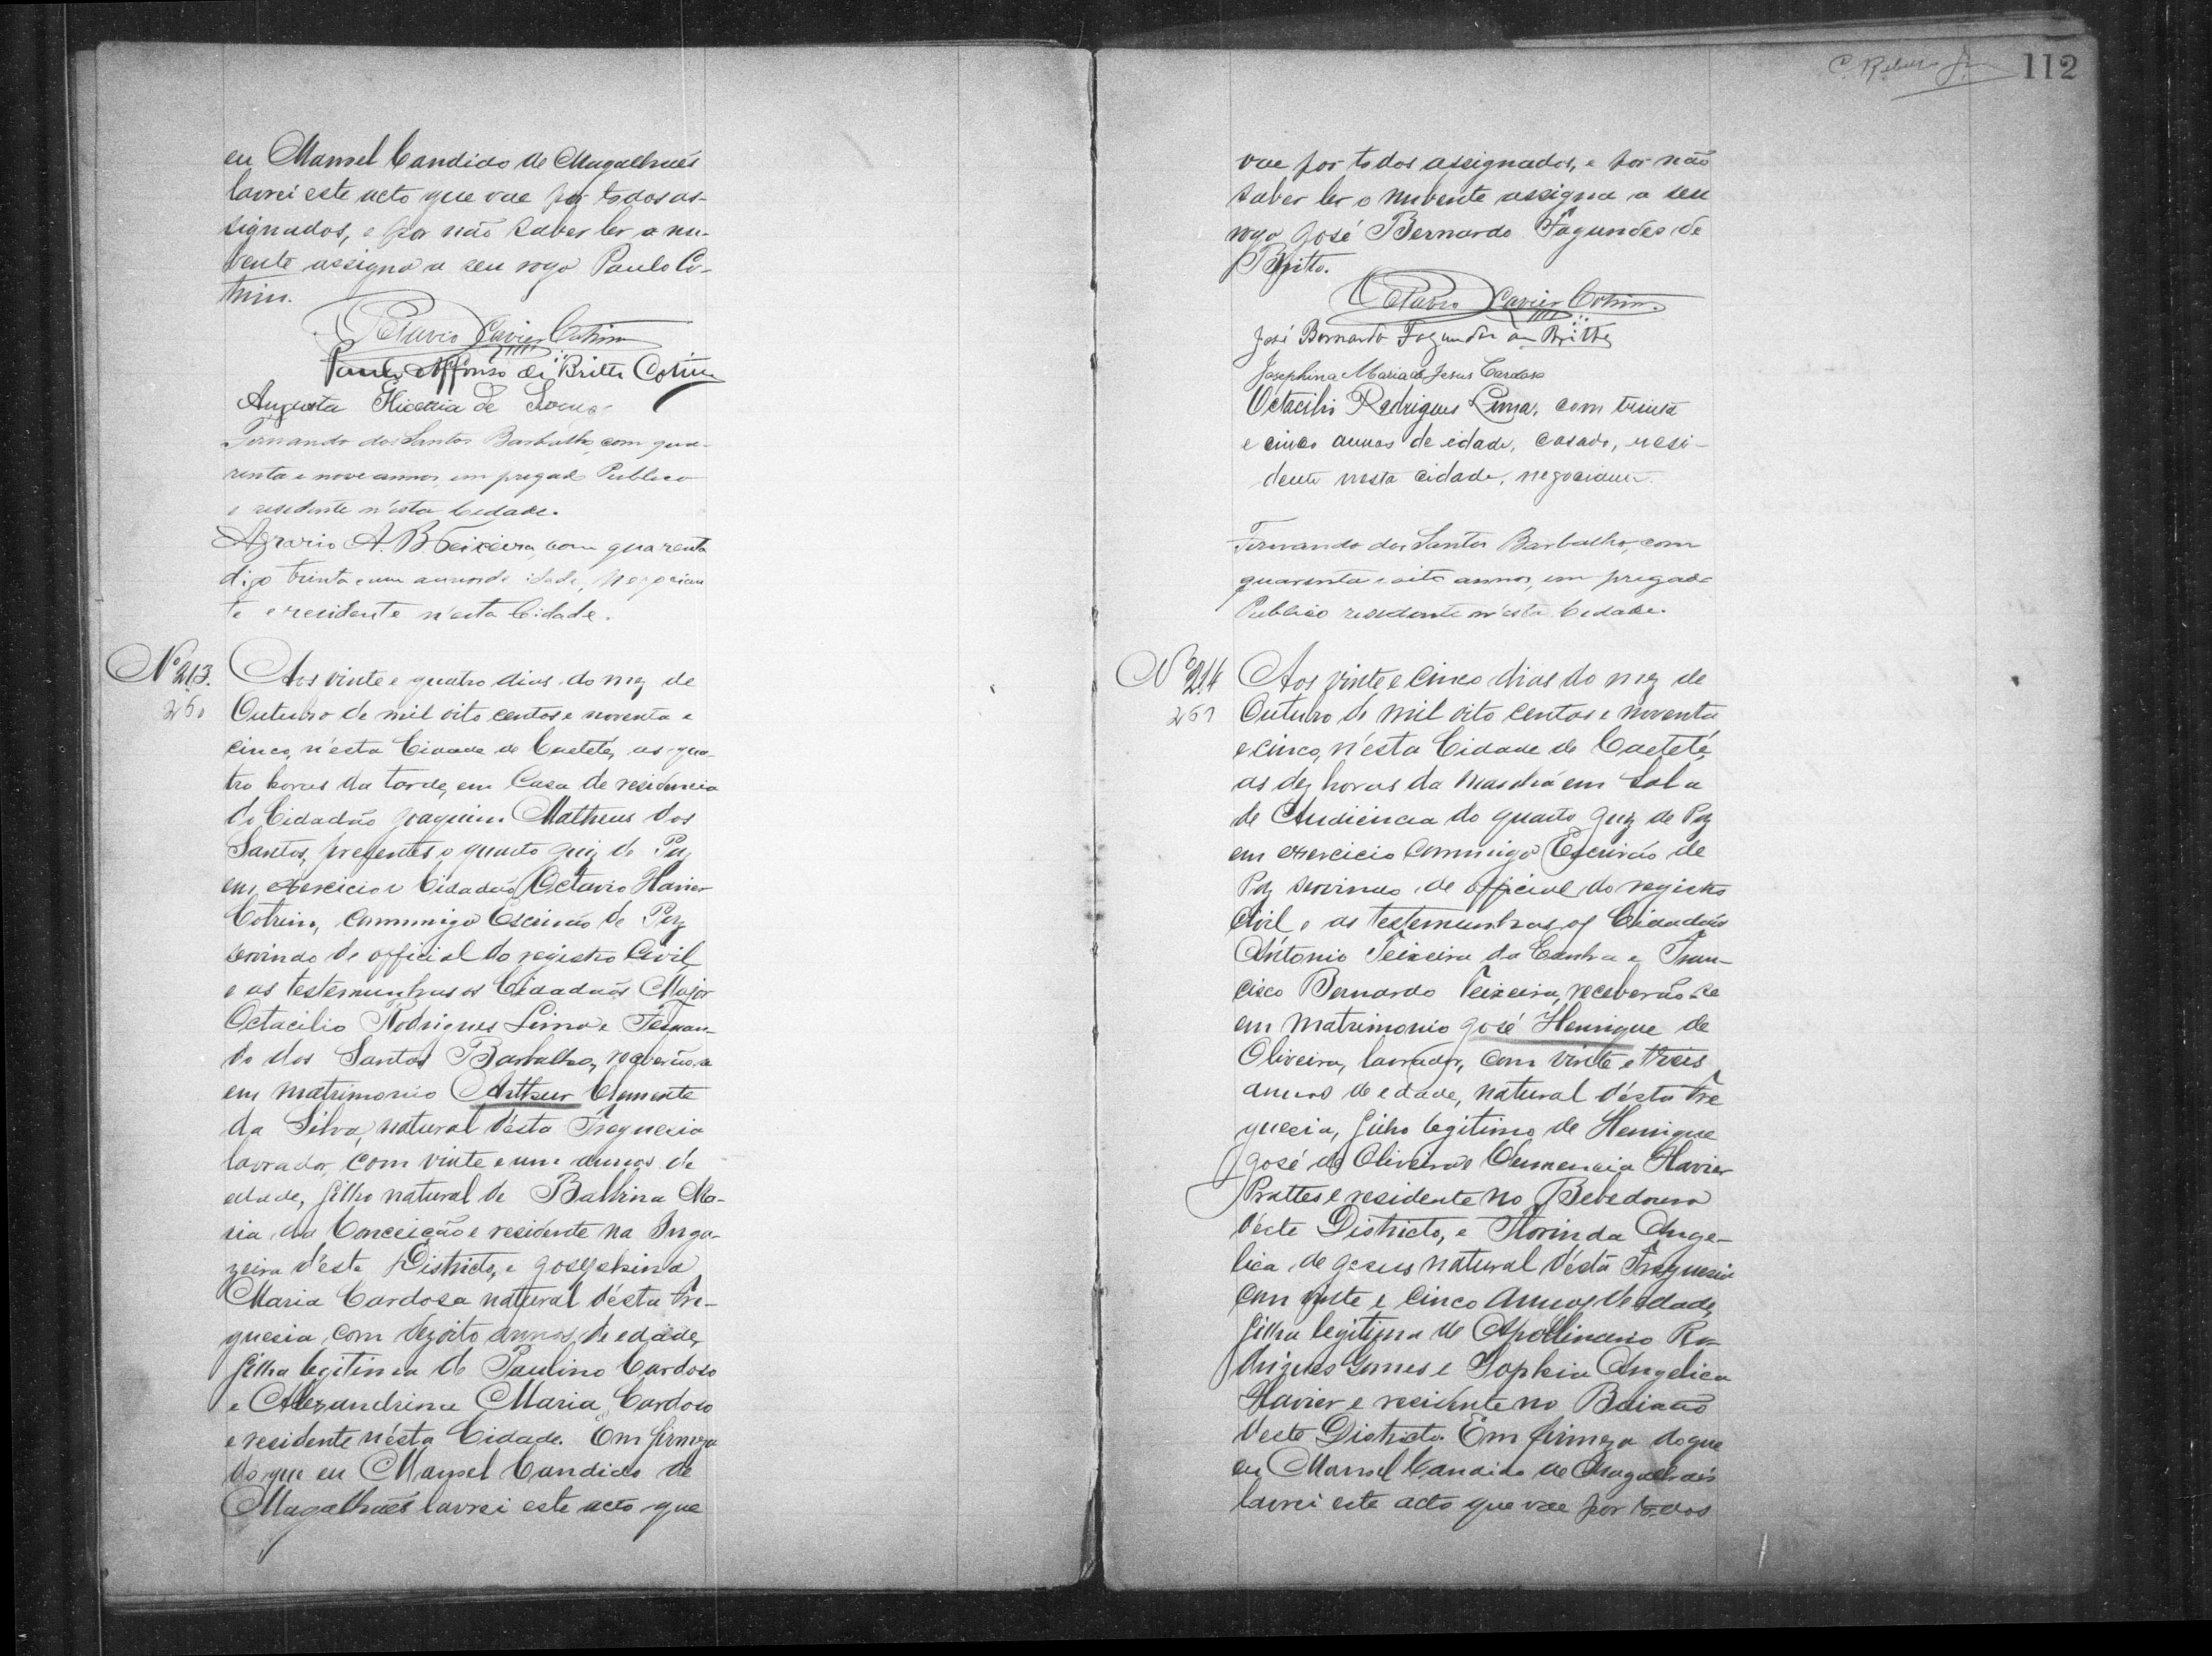 eu Manoel Candido de Magalhães
lavrei este acto que vae por todos as-
signados, e por não saber ler a nu-
bente assigna a seu rogo Paulo Co-
trim.
Octavio Xavier Cotrim
Paulo Affonso de Britto Cotrim
Augusta Hiceria de
Fernando dos Santos Barbalho, com qua-
renta e nove annos, empregado Publico
e resedente n'esta Cedade.
Agrario A. B. Teixeira, com quarenta
digo trinta e um annos de idade, negocian
te e residente n'esta Cidade.
Nº 213.
250
Aos vinte e quatro dias do mez de
Outubro de mil oito centos e noventa e
cinco, n'esta Cidade de Caeteté, as qua-
tro horas da tarde, em Casa de residencia
do Cidadão Joaquim Matheus dos
Santos, presentes o quarto Juiz de Paz
em exercicio o Cidadão Octavio Xavier
Cotrim, commigo Escrivão de Paz
servindo de official do registro Civil,
e as testemunhas os Cidadãos Major
Octacilio Rodrigues Lima e Fernan-
do dos Santos Barbalho, receberão-se
em matrimonio Arthur Clemente
da Silva, natural d'esta Freguesia
lavrador, com vinte e um annos de
edade, filho natural de Balbina Ma-
ria da Conceição e residente na Inga-
zeira d'este Districto, e Josephina
Maria Cardosa natural d'esta Fre-
guesia, com dezoito annos de edade,
filha legitima de Paulino Cardoso
e Alexandrina Maria Cardoso
e residente n'esta Cidade. Em firmeza
do que eu Manoel Candido de
Magalhães lavrei este acto que
C. Rebello Jr.
112
vae por todos assignados, e por não
saber ler o nubente assigna a seu
rogo José Bernardo Fagundes de
Britto.
Octavio Xavier Cotrim.
José Bernardo Fagundes de Britto
Josephina Maria de Jesus Cardosa
Octacilio Rodrigues Lima, com trinta
e cinco annos de idade, casado, resi-
dente nesta cidade, negociante.
Fernando dos Santos Barbalho, com
quarenta e oito annos, empregado
Publico resedente n'esta Cedade.
Nº 214
251
Aos vinte e cinco dias do mez de
Outubro de mil oito centos e noventa
e cinco, n'esta Cidade de Caeteté,
as dez horas da manhã em Sala
de Audiencia do quarto Juiz de Paz
em exercicio commigo Escrivão de
Paz servindo de official do registro
Civil e as testemunhas os Cidadãos
Antonio Teixeira da Cunha e Fran-
cisco Bernardo Teixeira, receberão-se
em matrimonio José Henrique de
Oliveira, lavrador, com vinte e treis
annos de edade, natural d'esta Fre
guesia, filho legitimo de Henrique
José de Oliveira e Clemencia Xavier
Prattes e residente no Bebedouro
d'este Districto, e Florinda Ange-
lica de Jesus natural d'esta Freguesia
com vinte e cinco annos de edade,
filha legitima de Apollinario Ro-
drigues Gomes e Sophia Angelica
Xavier e recidente no Baixão
deste Districto. Em firmeza do que
eu Manoel Candido de Magalhães
lavrei este acto que vae por todos